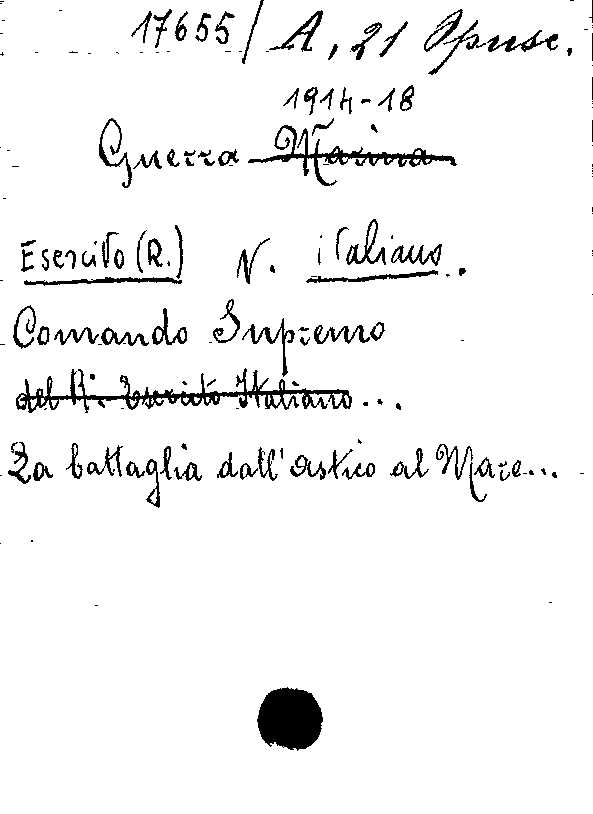 17655/ A, 21 Opusc.
1914-18
Guerra Marina
Esercito (R.) V. italiano.
Comando Supremo
del R. Esercito Italiano...
La battaglia dall'astico al Mare...